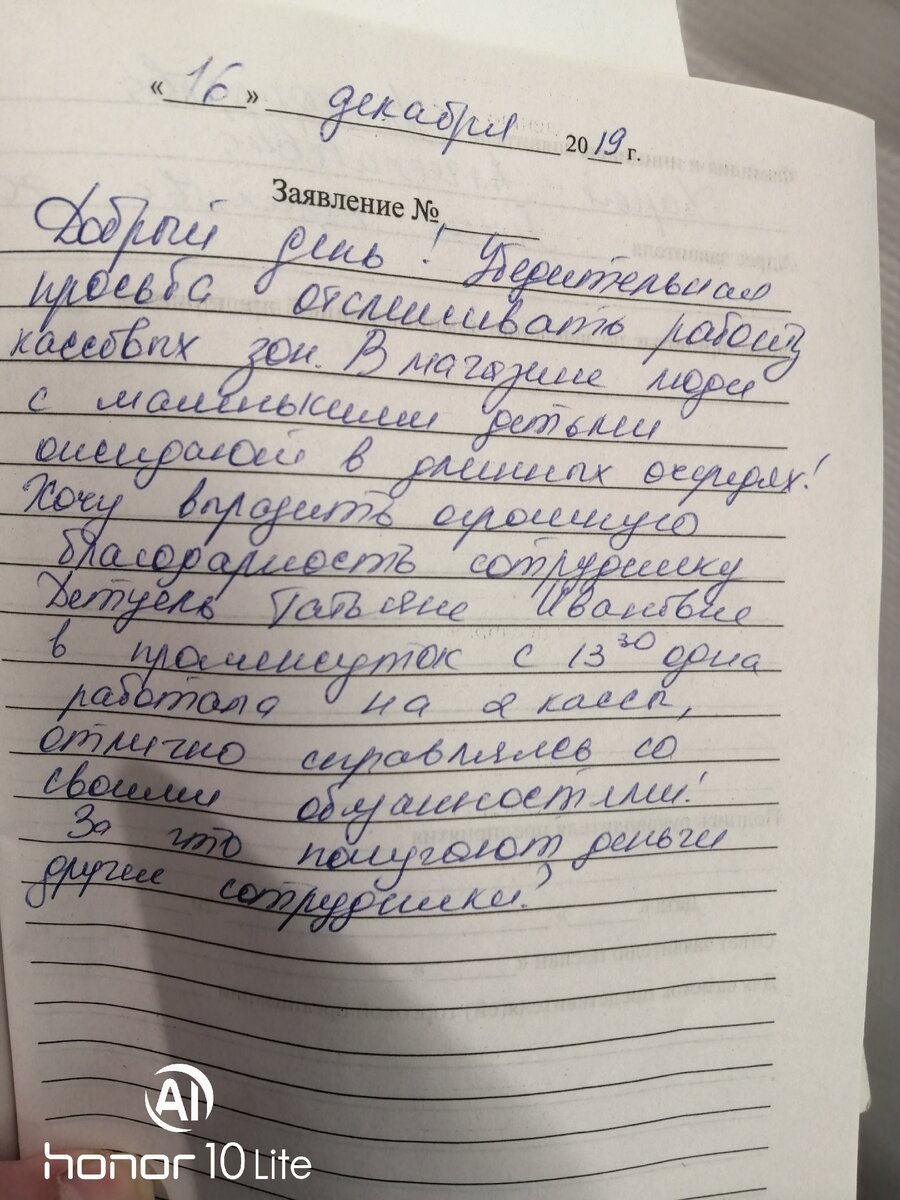 «16» декабря 2019 г.
Заявление №
Добрый день! Убедительная
просьба отслеживать работу
кассовых зон. В магазине люди
с маленькими детьми
ожидают в длинных очередях!
Хочу выразить огромную
благодарность сотруднику
Татьяне Ивановне
в промежуток с 13 30 одна
работала на 2 кассы,
отлично справлялсь со
своими обязанностями!
За что получают деньги
другие сотрудники?
AI
honor 10 Lite